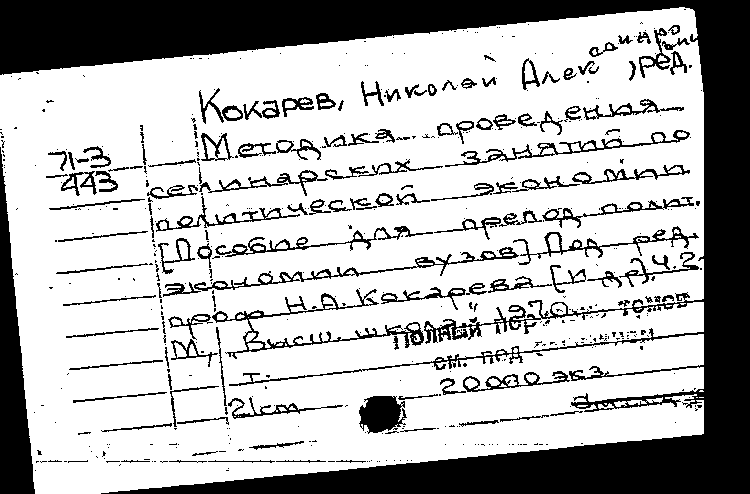 Кокарев, Николай Александрович, ред.
71-3
443
Методика проведения
семинарских занятий по
политической экономии.
[Пособие для препод. полит.
экономии вузов]. Под ред.
проф Н.А. Кокарева [и др]. Ч.2
М., „Высш. школа“ 1970
Полный томов
см. под
т.
20000 экз.
21 cm